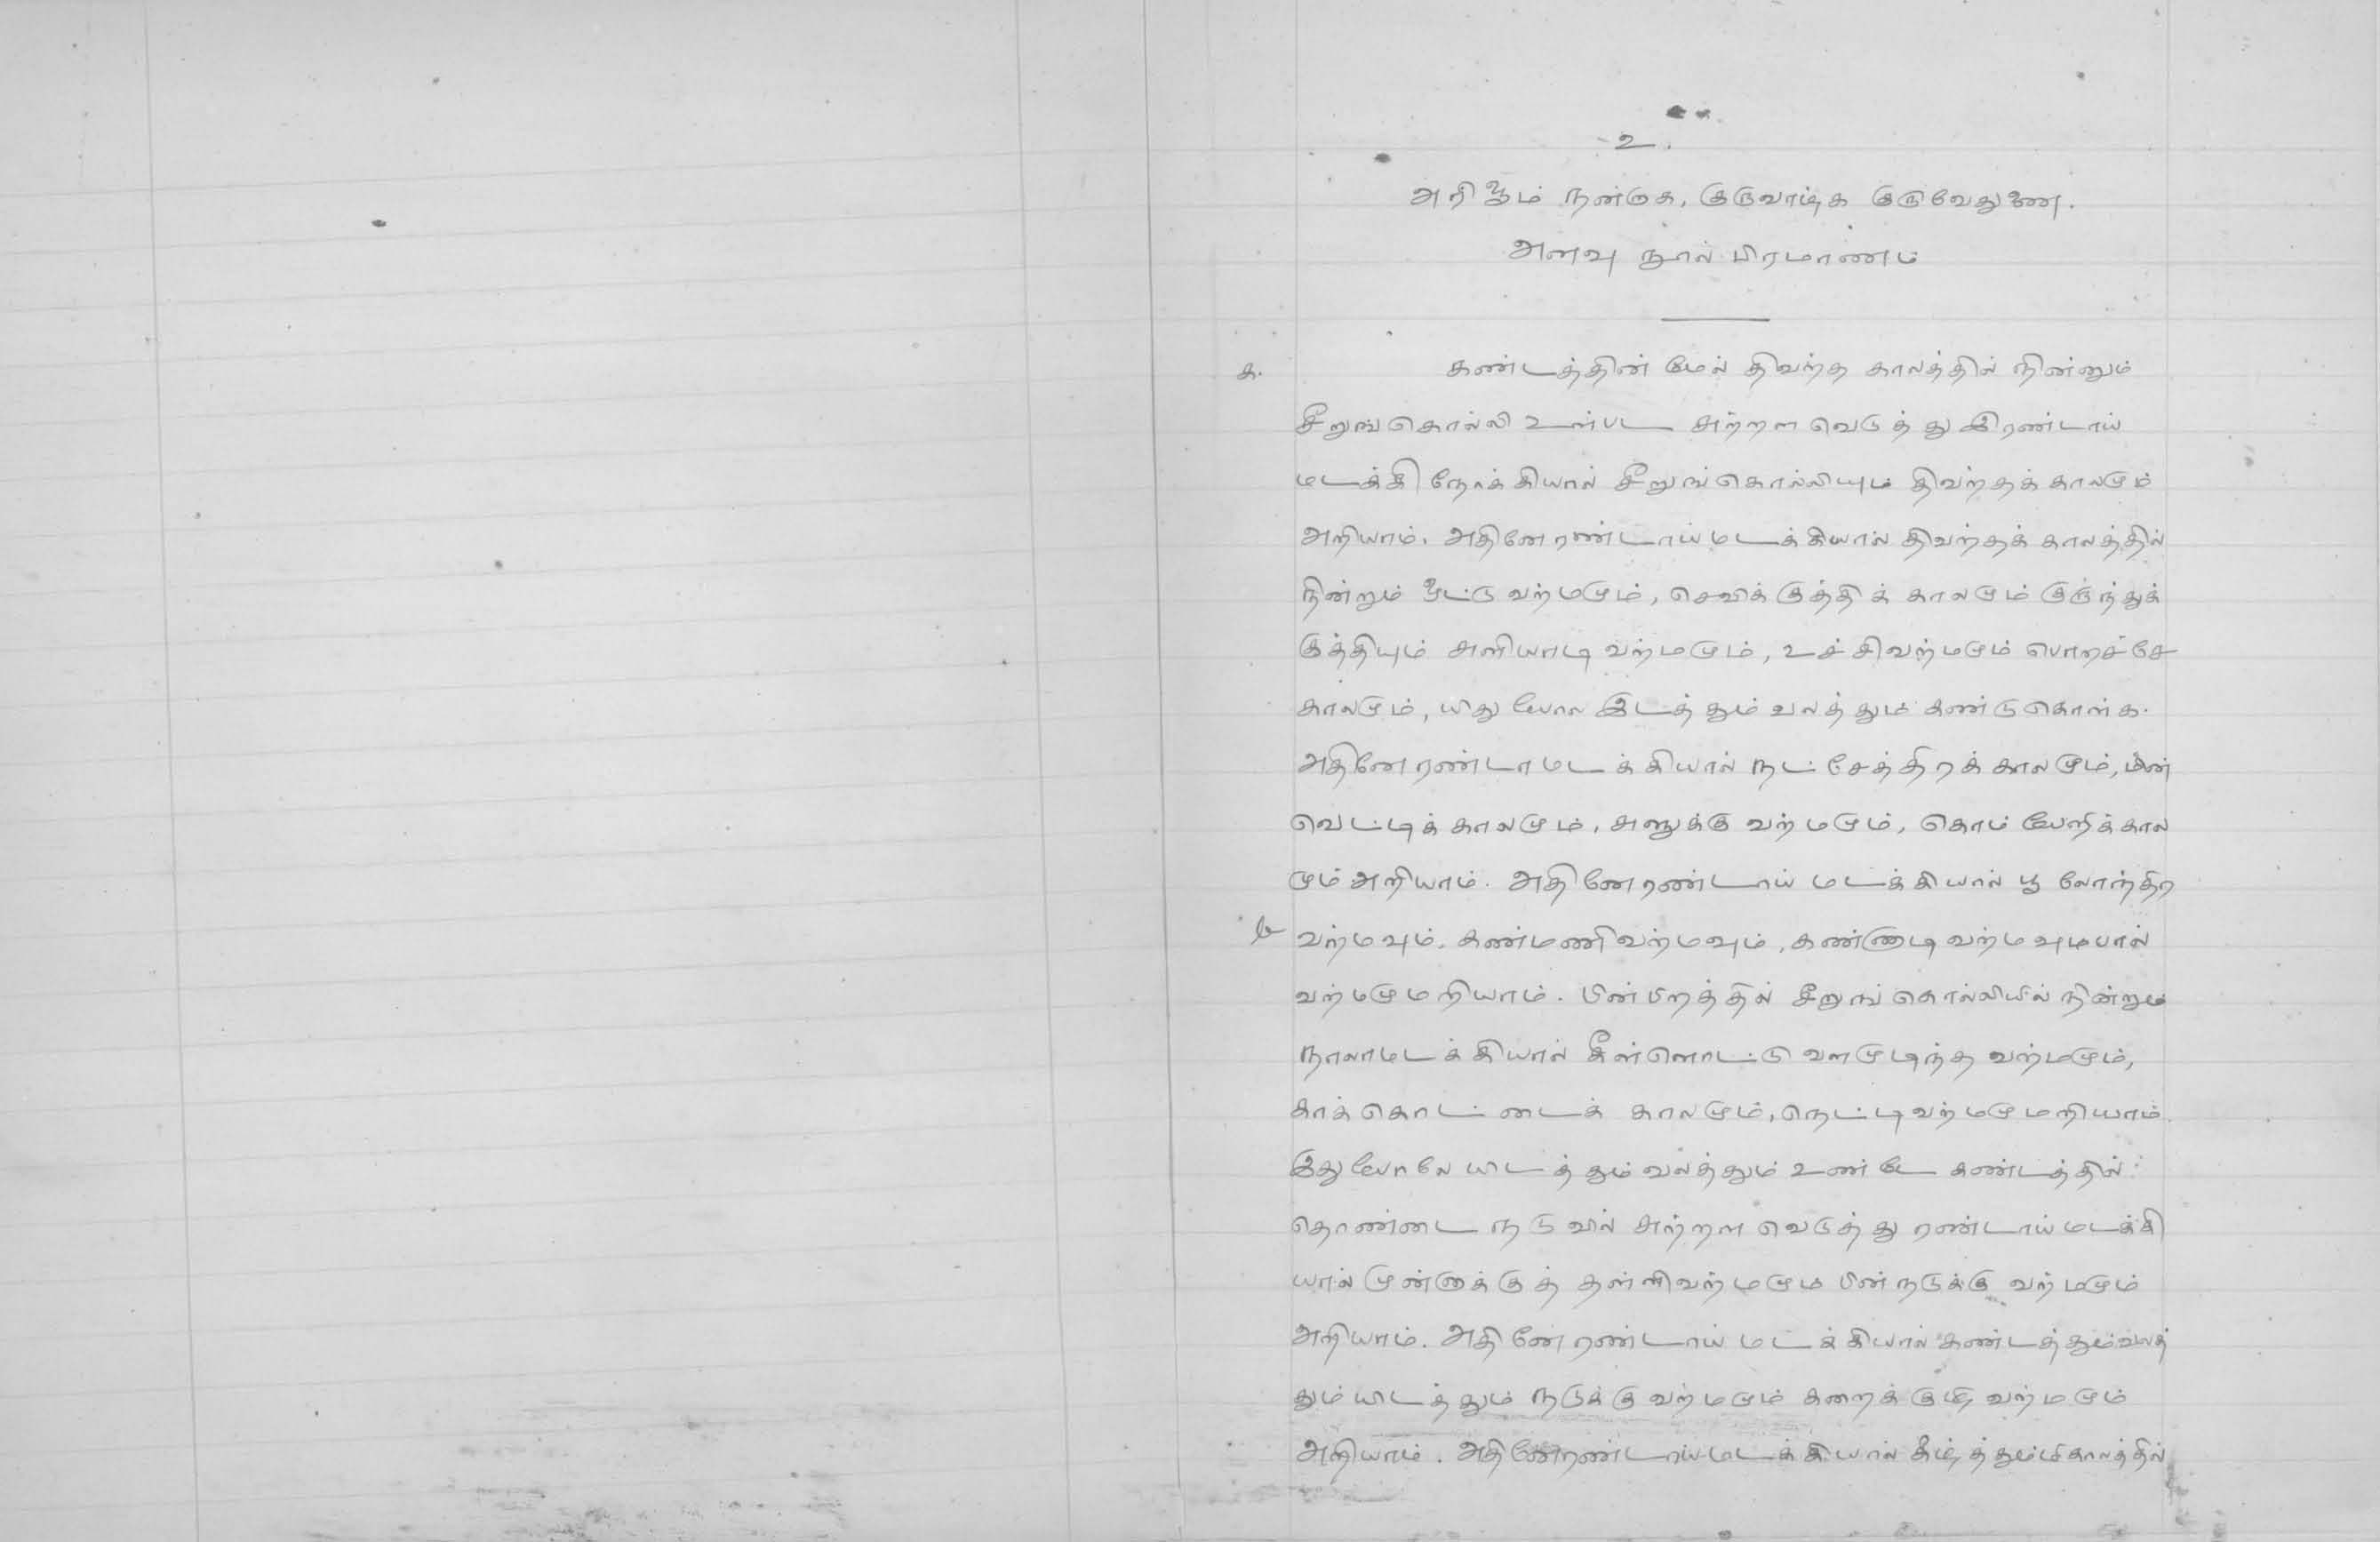 உ.
அரிஓம் நன்றாக, குருவாழ்க குருவேதுணை.
அளவு நூல் பிரமாணம்
க. கண்டத்தின் மேல் திவற்த காலத்தில் நின்னும்
சீறுங்கொல்லி உள்பட அற்றள வெடுத்து இரண்டாய்
மடக்கி நோக்கியால் சீறுங்கொல்லியும் திவற்தக் காலமும்
அறியாம். அதினே ரண்டாய் மடக்கியால் திவற்தக் காலத்தில்
நின்றும் ஓட்டு வற்மமும், செவிக்குத்திக் காலமும் குருந்துக்
குத்தியும் அளியாடி வற்மமும், உச்சிவற்மமும் பொறச்சே
காலமும், யிது போல இடத்தும் வலத்தும் கண்டு கொள்க.
அதினே ரண்டாமடக்கியால் நட்சேத்திரக் காலமும், மின்
வெட்டிக் காலமும், அணுக்கு வற்மமும், கொம்பேறிக் கால
மும் அறியாம். அதினே ரண்டாய் மடக்கியால் பூலோந்திர
வற்மவும். கண்மணி வற்மவும், கண்ணாடி வற்மவும்பால்
வற்மமுமறியாம். பின்பிறத்தில் சீறுங்கொல்லியில் நின்றும்
நாலாமடக்கியால் கீள்ளொட்டு வளமுடிந்த வற்மமும்,
காக்கொட்டைக் காலமும், நெட்டி வற்மமுமறியாம்.
இது போலே யிடத்தும் வலத்தும் உண்டே கண்டத்தில்
தொண்டை நடுவில் அற்றள வெடுத்து ரண்டாய் மடக்கி
யால் முண்ணாக்குத் தள்ளிவற்மமும் பின் நடுக்கு வற்மமும்
அறியாம். அதினே ரண்டாய் மடக்கியால் கண்டத்தும்வலத்
தும் யிடத்தும் நடுக்கு வற்மமும் கறைக் குழி வற்மமும்
அறியாம். அதினேரண்டாய் மடக்கியால் கீழ்த்தும்மிகாலத்தில்